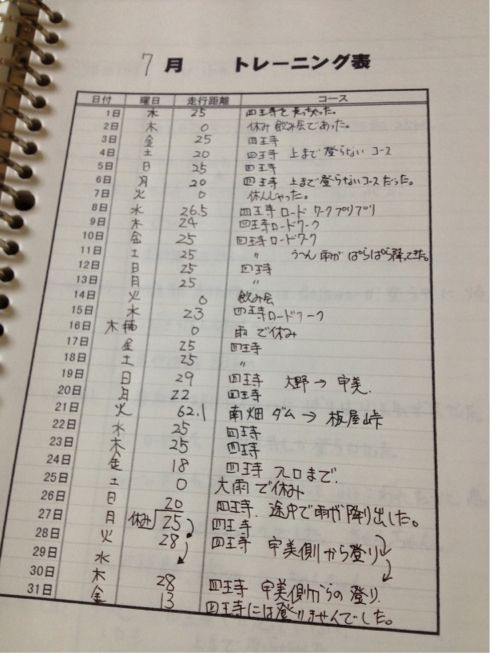 7月 トレーニング表
日付 曜日 走行距離 コース
1日 水 25 四王寺を走った。
2日 木 0 休み 飲み会であった。
3日 金 25 四王寺
4日 土 20 四王寺 上まで登らない コース
5日 日 25 四王寺
6日 月 20 四王寺 上まで登らないコースだった。
7日 火 0 休んじゃった。
8日 水 26.5 四王寺ロードワークプリプリ
9日 木 24 四王寺ロードワーク
10日 金 25 四王寺ロードワーク
11日 土 25 〃 うーん 雨が ぱらぱら降ってきた。
12日 日 25 四王寺
13日 月 25 〃
14日 火 0 飲み会
15日 水 23 四王寺ロードワーク
16日 木 0 雨で休み
17日 金 25 四王寺
18日 土 25 〃
19日 日 29 四王寺 大野→宇美
20日 月 22 四王寺
21日 火 62.1 南畑ダム→板屋峠
22日 水 25 四王寺
23日 木 25 四王寺
24日 金 18 四王寺 元口まで
25日 土 0 大雨で休み
26日 日 20 四王寺 途中で雨が降り出した。
27日 月 休み 25 四王寺
28日 火 28 四王寺 宇美側から登り
29日 水
30日 木 28 四王寺 宇美側からの登り
31日 金 13 四王寺には登りませんでした。